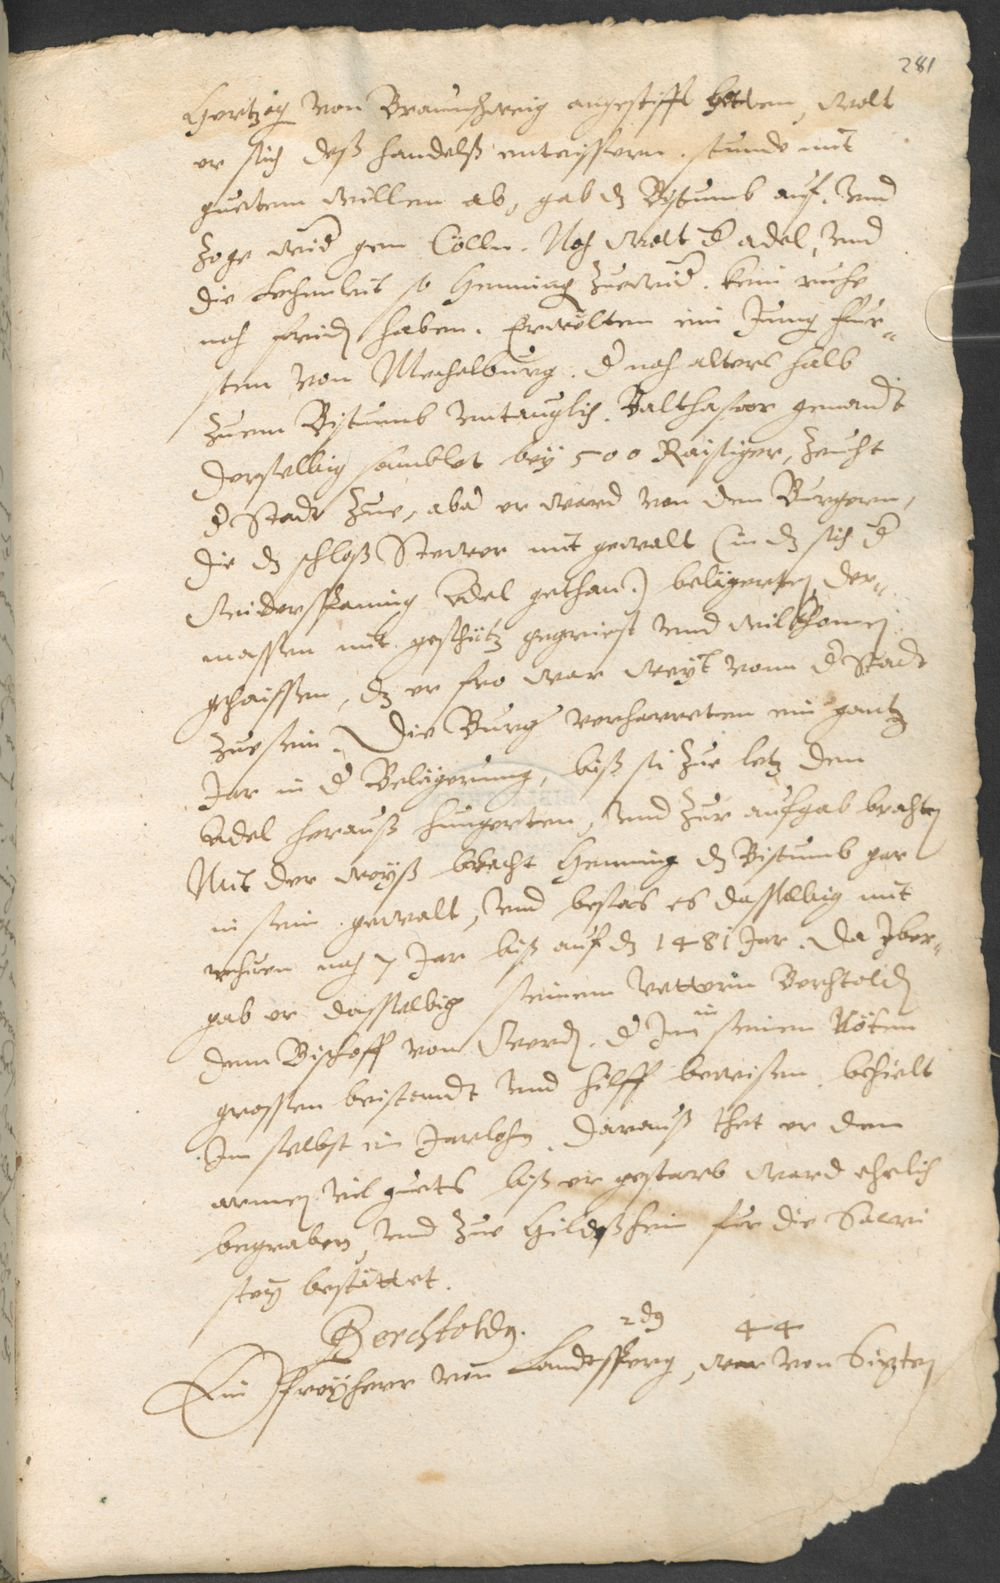 281
Hertzog von Braunschweig angestifft hetten, wolt
er sich deß handelß enteüssern. stunde mit
guettem willen ab, gab dz Bistumb auf. vnd
zoge wid gen Cölln. Noch wolt d adel, vnd
die Lechenleüt so Henning zuewid. kein ruhe
noch friden haben. Erwölten ein Jung Für-
sten von Mechelburg. d noch alters halb
zuem Bistumb vntauglich. Balthasar genandt
derselbig samblet bey 500 Raisiger, zeücht
d Stadt zue, aber er ward von den Burgern,
die dz schloß Steuer mit gewalt (in dz sich d
widerspenning Adel gethan.) belägerten, der-
massen mit geschütz gegriest vnd wilkhomen
gehaissen, dz er fro war weyt vonn d Stadt
zuesein. Die Burg verharreten ein gantz
Jar in d Belägerung, biß si zue letz den
Adel herauß hungerten, vnd zur aufgab brachten
Mit der weyß bracht Henning dz Bistumb gar
in sein gewalt, vnd besaß es dasselbig mit
rhuen noch 7 Jar biß auf dz 1481 Jar. Da Vber-
gab er dasselbig seinem Vettern Berchtolden
dem Bischoff von Verden. d Im in seinen Nöten
grossen beistandt vnd hilff bewisen. behielt
Im selbst ein Jarlohn. darauß thet er den
armen vil guets biß er gestarb ward ehrlich
begraben, vnd zue Hildeßheim für die Sacri
stey bestättet.
Berchtoldg. 2dg 44
Ein Freyherr von Landesperg, war von Sixten